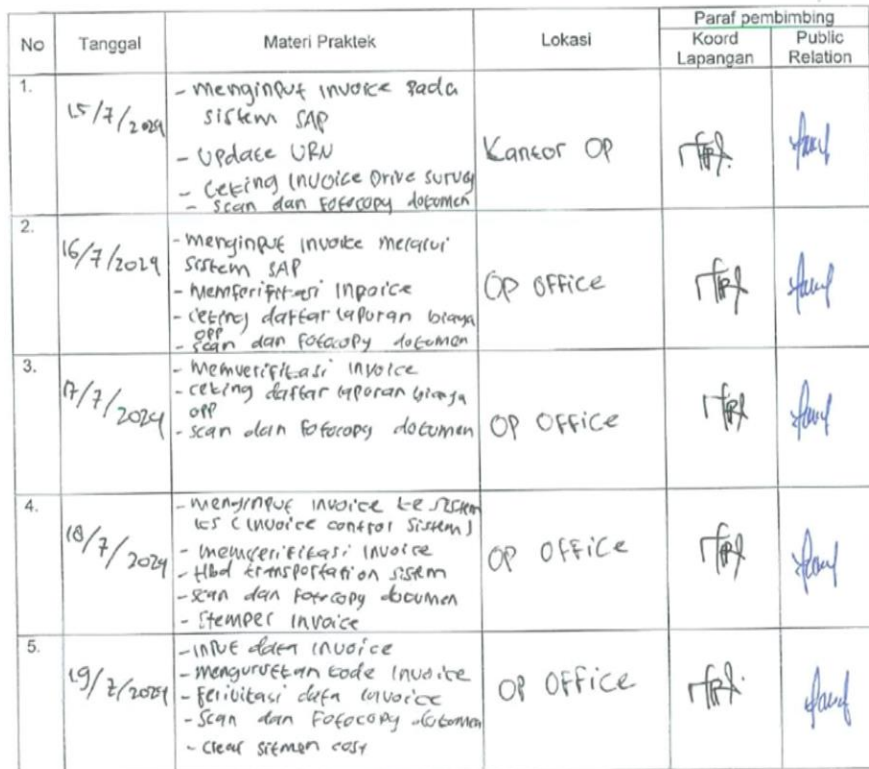 No Tanggal Materi Praktek Lokasi Paraf pembimbing
Koord Lapangan Public Relation
1.
15/7/2024
- menginput invoice pada
sistem SAP
- Update URN
- ceking invoice Drive survey
- scan dan fotocopy dokumen
Kantor OP
2.
16/7/2024
- menginput invoice melalui
sistem SAP
- memferifikasi inpoice
- ceking daftar laporan biaya
opp
- scan dan fotocopy dokumen
OP OFFice
3.
17/7/2024
- memverifikasi invoice
- ceking daftar laporan biaya
opp
- scan dan fotocopy dokumen
OP OFFice
4.
18/7/2024
- menginput invoice ke sistem
ICS (invoice control sistem)
- memverifikasi invoice
- Hbd transportation sistem
- scan dan fotocopy documen
- stemper invoice
OP OFFice
5.
19/7/2024
- input data invoice
- mengurutkan kode invoice
- ferivikasi data invoice
- scan dan fotocopy dokumen
- clear sitmen cost
OP OFFice